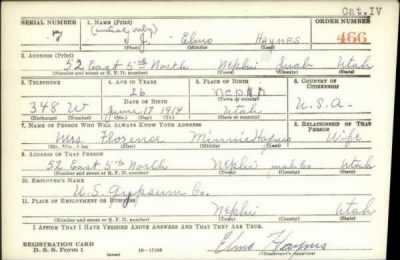 Cat. IV
SERIAL NUMBER 1. NAME (Print) ORDER NUMBER
7 (initial only) J. Elmo Haynes 466
(First) (Middle) (Last)
2. ADDRESS (Print)
52 East 5th North Nephi Juab Utah
(Number and street or R. F. D. number) (Town) (County) (State)
3. TELEPHONE 4. AGE IN YEARS 5. PLACE OF BIRTH 6. COUNTRY OF CITIZENSHIP
26 Nephi
348 W DATE OF BIRTH (Town or county)
June 17 1914 Utah U.S.A.
(Exchange) (Number) (Mo.) (Day) (Yr.) (State or country)
7. NAME OF PERSON WHO WILL ALWAYS KNOW YOUR ADDRESS 8. RELATIONSHIP OF THAT PERSON
Mrs Florence Minnie Haynes Wife
(Mr., Mrs., Miss) (First) (Middle) (Last)
9. ADDRESS OF THAT PERSON
52 East 5th North Nephi Utah
(Number and street or R. F. D. number) (Town) (County) (State)
10. EMPLOYER'S NAME
U.S. Gypsum Co.
11. PLACE OF EMPLOYMENT OR BUSINESS
Nephi Utah
(Number and street or R. F. D. number) (Town) (County) (State)
I AFFIRM THAT I HAVE VERIFIED ABOVE ANSWERS AND THAT THEY ARE TRUE.
REGISTRATION CARD
D. S. S. Form 1 (over) 16—17105 Elmo Haynes
(Registrant's signature)